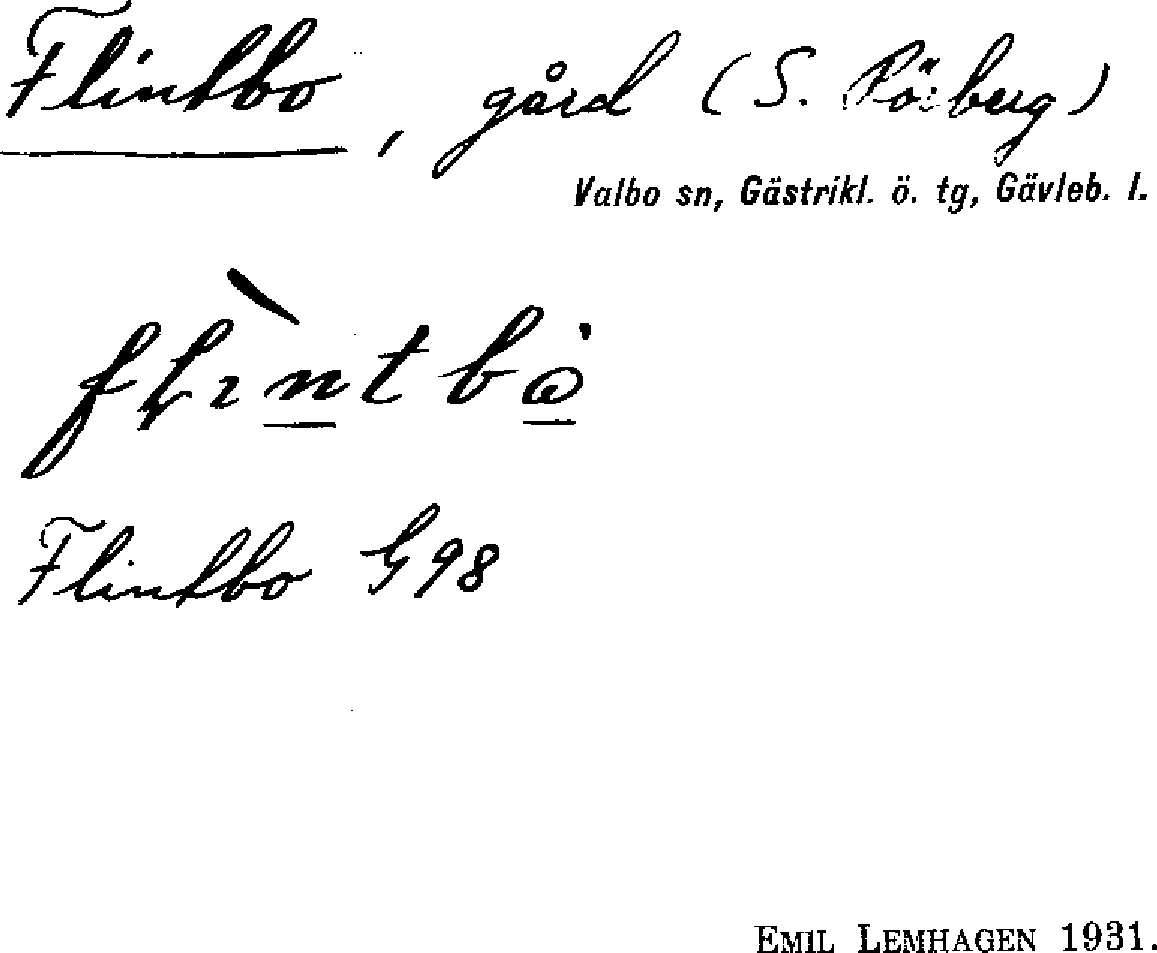 Flintbo, gård (S. Rörberg)
Valbo sn, Gästrikl. ö. tg, Gävleb. l.
Flintbo G98
EMIL LEMHAGEN 1931.